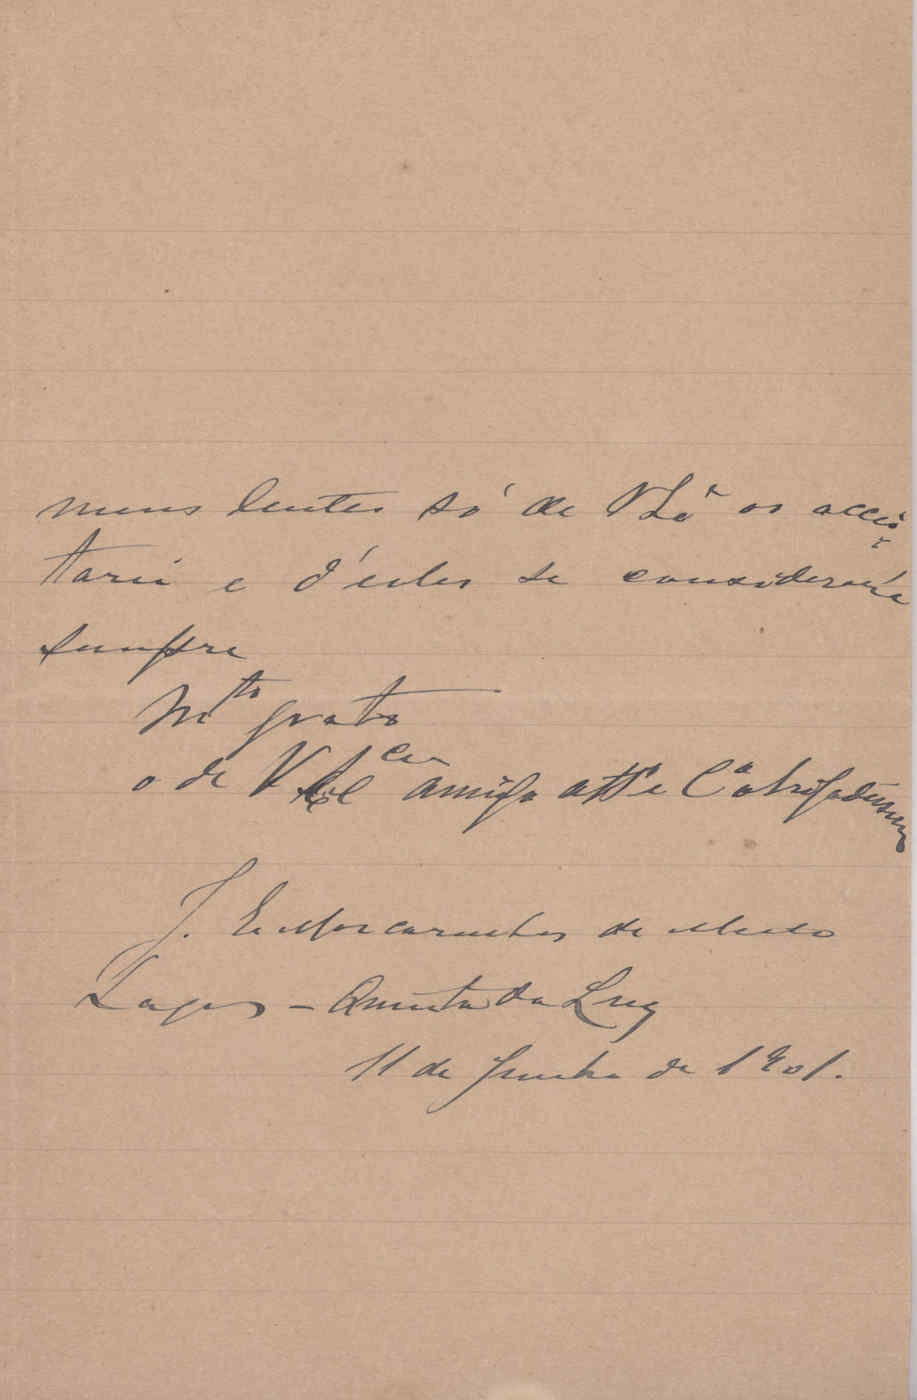 mens dentes só de V. Sª os accei-
tarei e d'estes se considerará
sempre
Mto grato
o de V. Excia amigo attº e Cº obrigadissimo
J. E. Mascarenhas de Mello
Lagos - Quinta da Luz
11 de Junho de 1901.